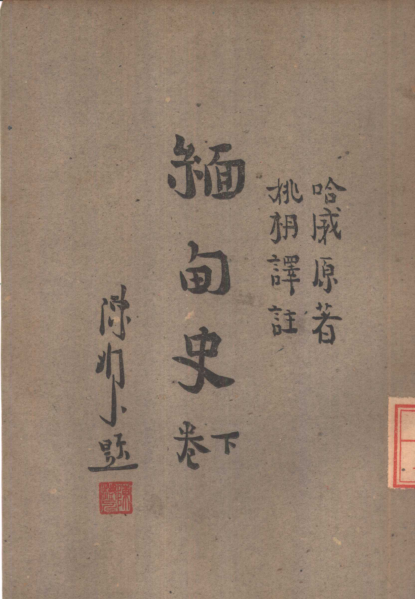 哈威原著
姚枬譯註
緬甸史
下卷
陳題